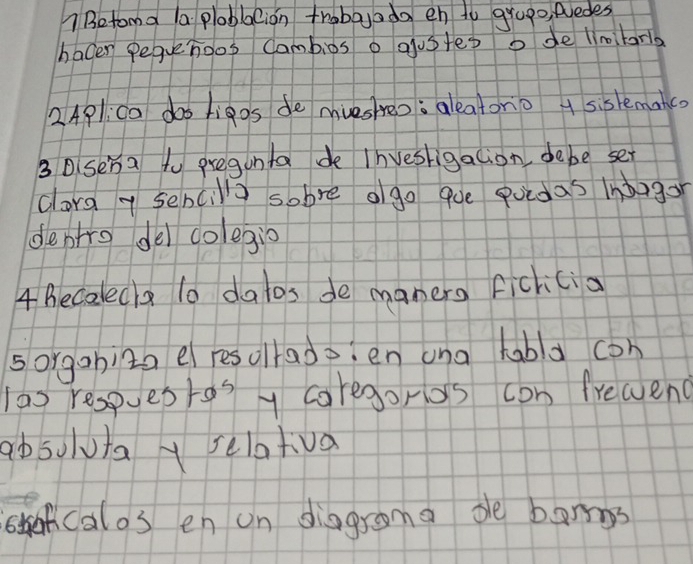 1 Retoma la ploblación trabajada en tu grupo, Puedes
hacer pequeños cambios o ajustes o de limitarla
2 Aplica dos tipos de muestreo: aleatorio y sistematico
3 Diseña tu pregunta de investigacion, debe ser
clara y sencilla sobre algo que puedas indagar
dentro del colegio
4 Recolecla lo datos de manera fichicia
5 organiza el resultado: en una tabla con
las respuestas y categorias con frecuenc
absoluta y relativa
6 graficalos en un diagrama de barras